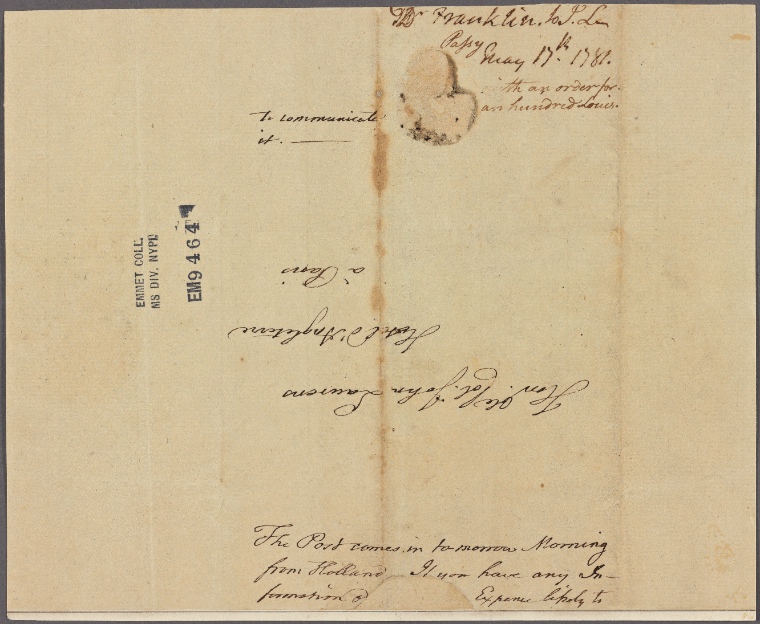 Dr Franklin to J. L
Passy
May 17th 1781.
with an order for
an hundred Louis.
to communicate
it.
EMMET COLL.
MS DIV. NYPL
EM9464
Honble Col. John Laurens
Hotel d'Angleterre
à Paris
The Post comes in tomorrow Morning
from Holland If you have any In-
formation of Expence likely to